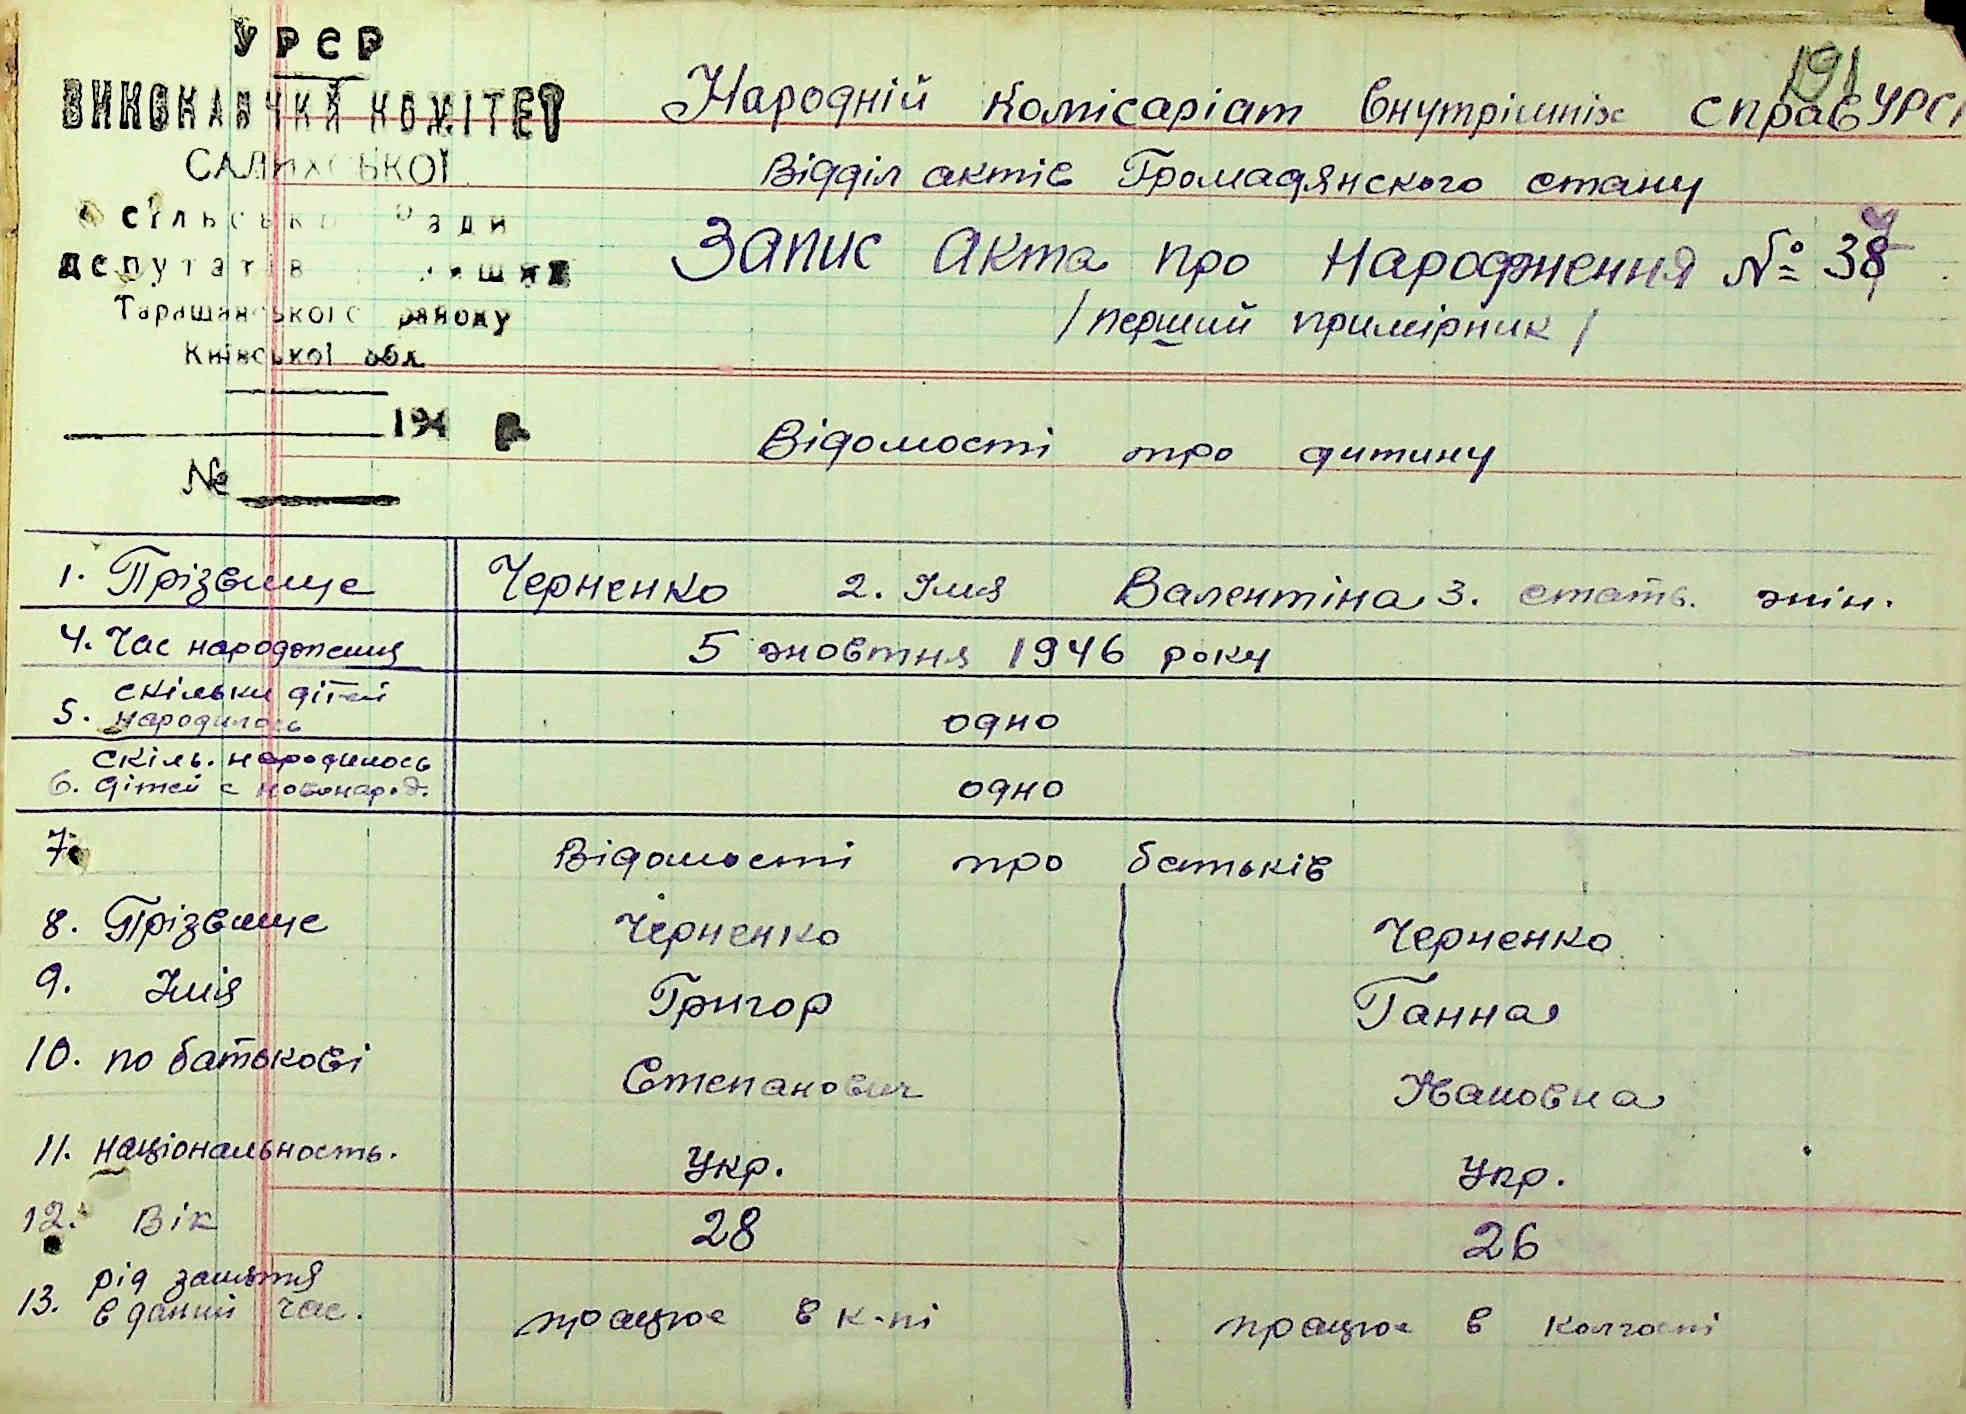 УРСР
ВИКОНАВЧИЙ КОМІТЕТ
САЛИХСЬКОЇ
сільської Ради
депутатів
Таращанського району
Київської обл
194 р
№
191
Народній Комісаріат внутрішніх справ УРСР
Відділ актів Громадянского стану
Запис акта про народження № 37
/перший примірник/
Відомості про дитину
1. Прізвище Черненко 2. Імя Валентіна 3. стать. жін.
4. Час народження 5 жовтня 1946 року
5. скільки дітей народилось одно
6. скіль. народилось дітей с новонарод. одно
7. Відомості про батьків
8. Прізвище Черненко Черненко
9. Імія Григор Ганна
10. по батькові Степанович
11. національность. Укр. Укр.
12. Вік 28 26
13. рід заняття в данний час. працює в к-пі працює в колгоспі